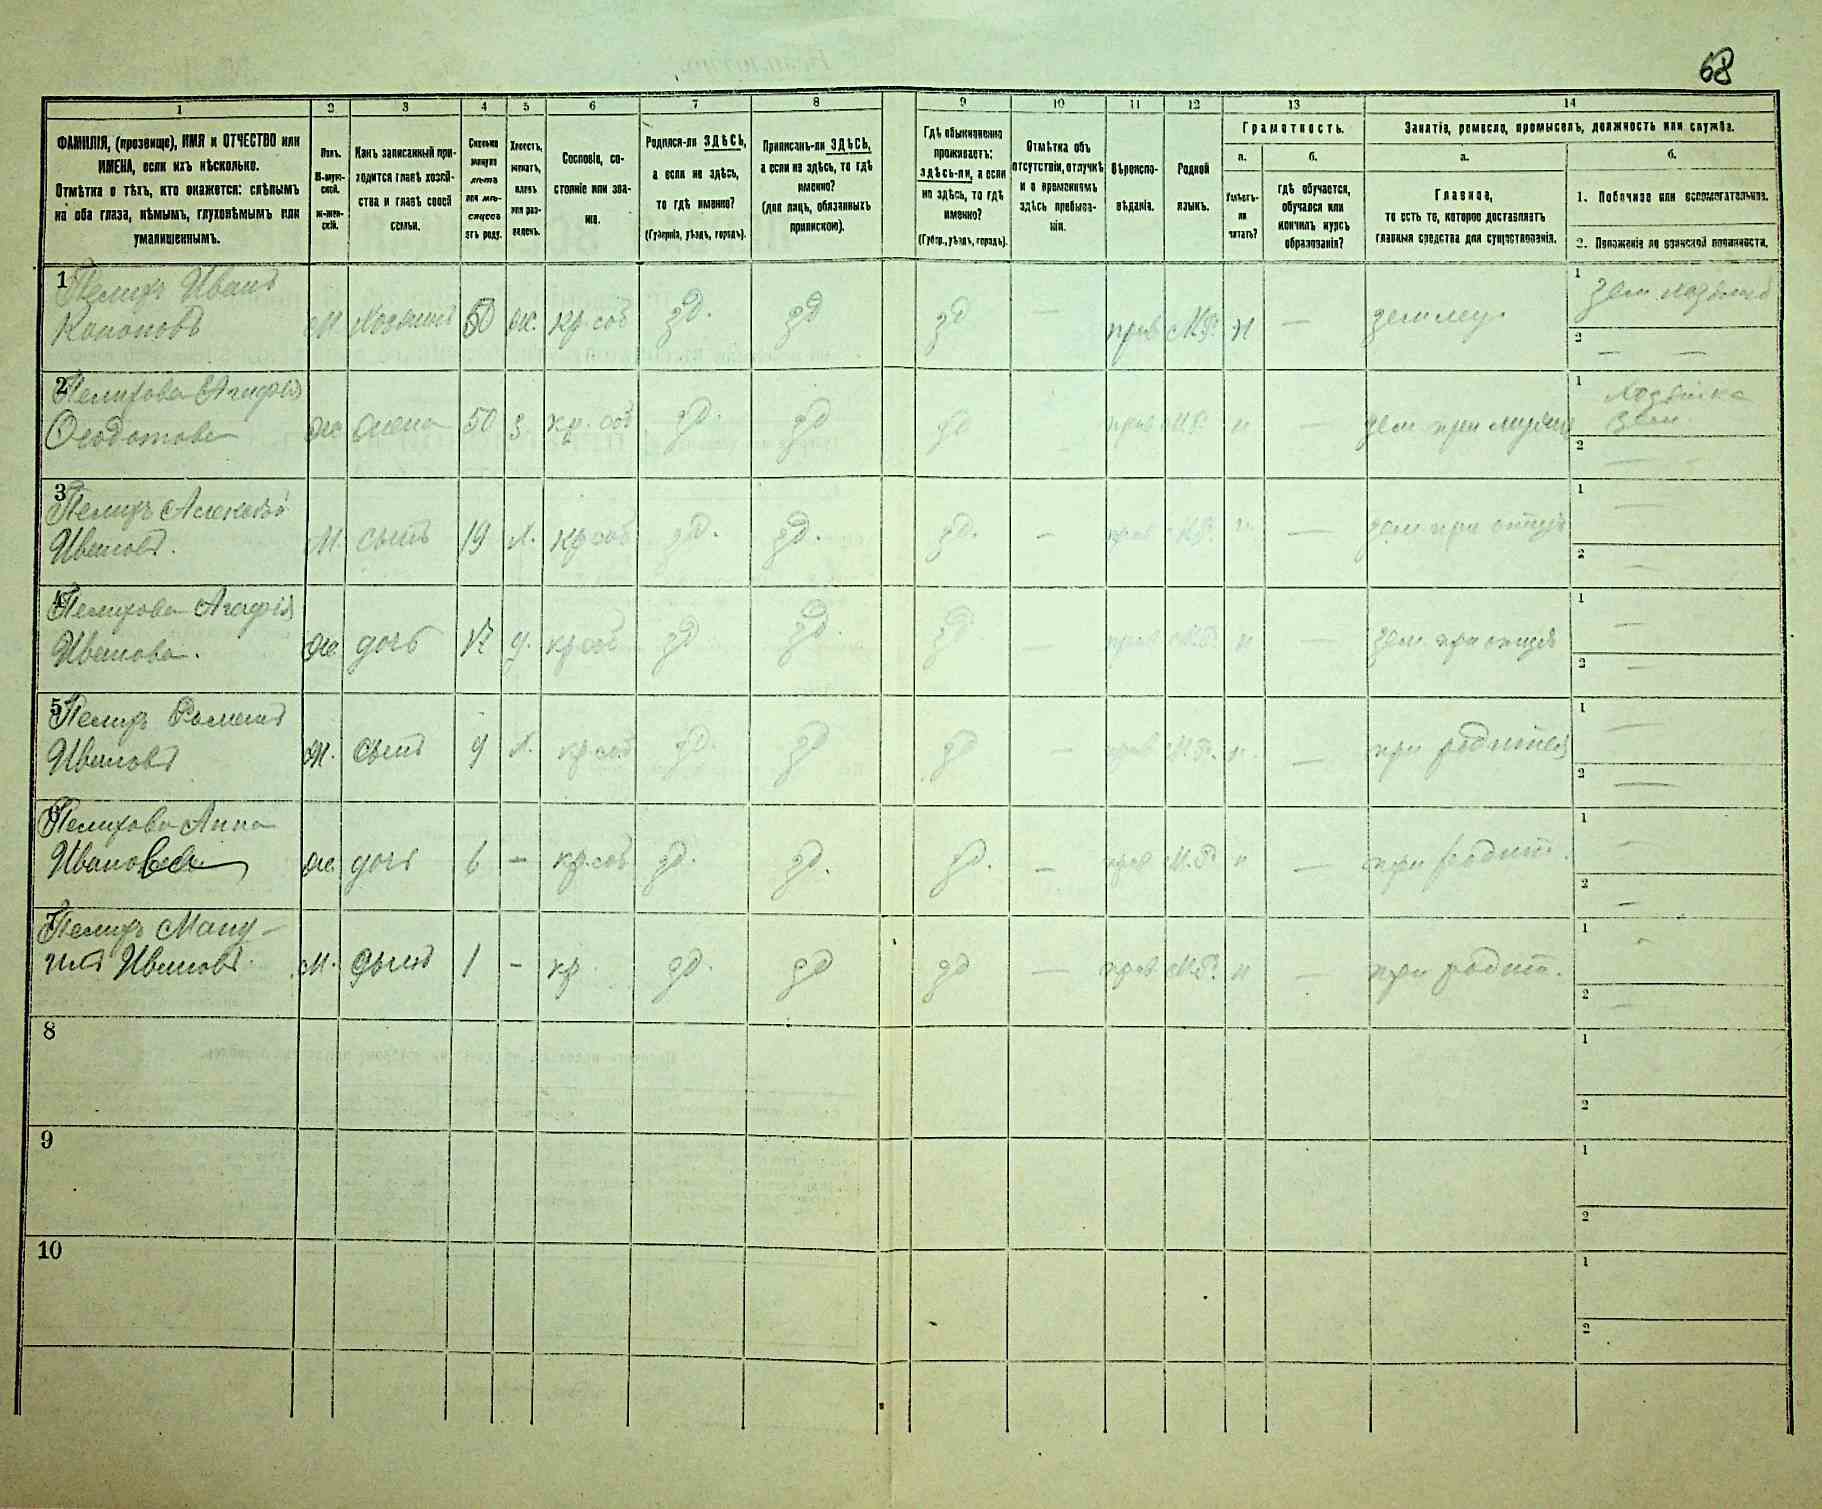 68
1 2 3 4 5 6 7 8 9 10 11 12 13 14
ФАМИЛІЯ, (прозвище), ИМЯ и ОТЧЕСТВО или
ИМЕНА, если ихъ нѣсколько.
Отмѣтка о тѣхъ, кто окажется: слѣпымъ
на оба глаза, нѣмымъ, глухонѣмымъ или
умалишеннымъ.
Полъ.
М-муж-
ской.
ж-жен-
скій.
Какъ записанный при-
ходится главѣ хозяй-
ства и главѣ своей
семьи.
Сколько
минуло
лѣтъ
или мѣ-
сяцевъ
отъ роду.
Холостъ,
женатъ,
вдовъ
или раз-
веденъ.
Сословіе, со-
стояніе или зва-
ніе.
Родился-ли ЗДѢСЬ,
а если не здѣсь,
то гдѣ именно?
(Губернія, уѣздъ, городъ).
Приписанъ-ли ЗДѢСЬ,
а если не здѣсь, то гдѣ
именно?
(для лицъ, обязанныхъ
припискою).
Гдѣ обыкновенно
проживаетъ:
здѣсь-ли, а если
не здѣсь, то гдѣ
именно?
(Губер., уѣздъ, городъ).
Отмѣтка объ
отсутствіи, отлучкѣ
и о временномъ
здѣсь пребыва-
ніи.
Вѣроиспо-
вѣданіе.
Родной
языкъ.
Грамотность.
а.
Умѣетъ-
ли
читать?
б.
гдѣ обучается,
обучался или
кончилъ курсъ
образованія?
Занятіе, ремесло, промыселъ, должность или служба.
а.
Главное,
то есть то, которое доставляетъ
главныя средства для существованія.
б.
1. Побочное или вспомогательное.
2. Положеніе по воинской повинности.
1 Пелихъ Иванъ
Кононовъ М Хозяинъ 50 ж. кр. соб зд. зд зд — прав М.Р. н —
1
2 — —
2 Пелихова Агафія
Ѳеодотова ж жена 50 з. кр. соб зд. зд зд прав М.Р. н — зем при мужѣ
1 Хозяйка
зем.
2 —
3 Пелихъ Алексѣй
Ивановъ. М. сынъ 19 х. кр соб зд. зд. зд. — прав М.Р. н. — зем при отцѣ
1 —
2 —
4 Пелихова Агафія
Иванова. ж дочь 17 д. кр соб зд зд. зд прав М.Р. н — зем. при отцѣ
1 —
2 —
5 Пелихъ Романъ
Ивановъ М. сынъ 9 х. кр соб зд. зд зд — прав М.Р. н. —
1 —
2 —
6 Пелихова Анна
Иванова ж. дочь 6 — кр соб зд. зд. зд. — прав М.Р н — при родит.
1 —
2 —
7 Пелихъ Ману-
илъ Ивановъ М. сынъ 1 — кр зд. зд зд — прав М.Р. н — при родит.
1
2 —
8
1
2
9
1
2
10
1
2